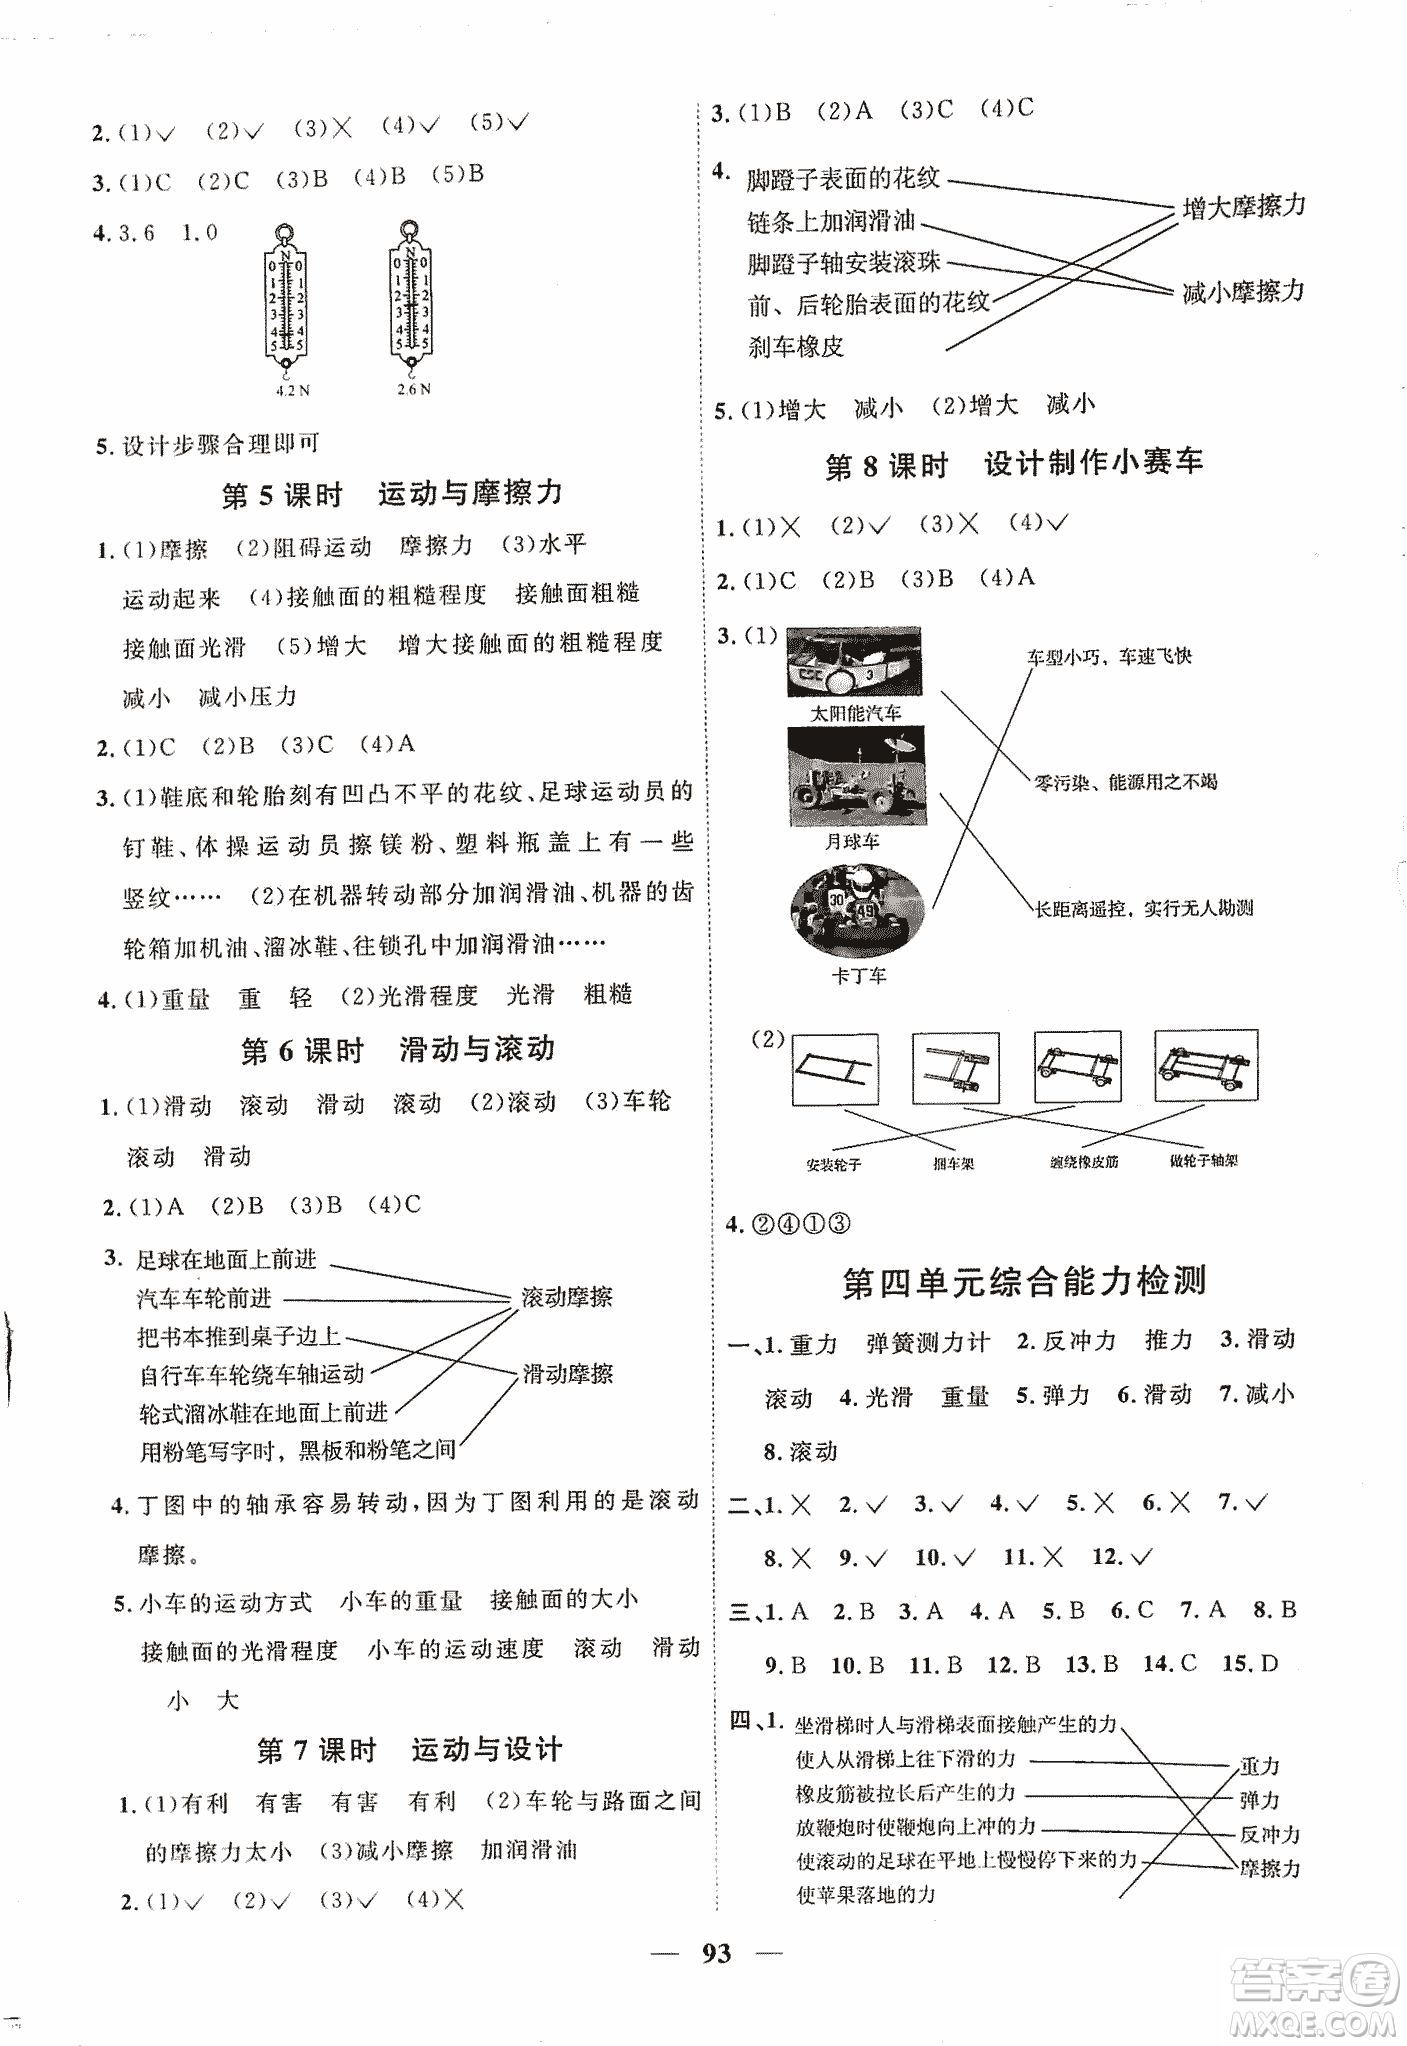 2.(1)✓ (2)✓ (3)✗ (4)✓ (5)✓
3.(1)C (2)C (3)B (4)B (5)B
4.3.6 1.0
N
0 0
1 1
2 2
3 3
4 4
5 5
4.2 N
N
0 0
1 1
2 2
3 3
4 4
5 5
2.6 N
5.设计步骤合理即可
第5课时 运动与摩擦力
1.(1)摩擦 (2)阻碍运动 摩擦力 (3)水平
运动起来 (4)接触面的粗糙程度 接触面粗糙
接触面光滑 (5)增大 增大接触面的粗糙程度
减小 减小压力
2.(1)C (2)B (3)C (4)A
3.(1)鞋底和轮胎刻有凹凸不平的花纹、足球运动员的
钉鞋、体操运动员擦镁粉、塑料瓶盖上有一些
竖纹…… (2)在机器转动部分加润滑油、机器的齿
轮箱加机油、溜冰鞋、往锁孔中加润滑油……
4.(1)重量 重 轻 (2)光滑程度 光滑 粗糙
第6课时 滑动与滚动
1.(1)滑动 滚动 滑动 滚动 (2)滚动 (3)车轮
滚动 滑动
2.(1)A (2)B (3)B (4)C
3.足球在地面上前进
汽车车轮前进
滚动摩擦
把书本推到桌子边上
自行车车轮绕车轴运动
滑动摩擦
轮式溜冰鞋在地面上前进
用粉笔写字时，黑板和粉笔之间
4.丁图中的轴承容易转动,因为丁图利用的是滚动
摩擦。
5.小车的运动方式 小车的重量 接触面的大小
接触面的光滑程度 小车的运动速度 滚动 滑动
小 大
第7课时 运动与设计
1.(1)有利 有害 有害 有利 (2)车轮与路面之间
的摩擦力太小 (3)减小摩擦 加润滑油
2.(1)✓ (2)✓ (3)✓ (4)✗
3.(1)B (2)A (3)C (4)C
4.脚蹬子表面的花纹
增大摩擦力
链条上加润滑油
脚蹬子轴安装滚珠
减小摩擦力
前、后轮胎表面的花纹
刹车橡皮
5.(1)增大 减小 (2)增大 减小
第8课时 设计制作小赛车
1.(1)✗ (2)✓ (3)✗ (4)✓
2.(1)C (2)B (3)B (4)A
3.(1)
CSC 3
车型小巧，车速飞快
太阳能汽车
零污染、能源用之不竭
月球车
30
49
长距离遥控，实行无人勘测
卡丁车
(2)
安装轮子 捆车架 缠绕橡皮筋 做轮子轴架
4.②④①③
第四单元综合能力检测
一、1.重力 弹簧测力计 2.反冲力 推力 3.滑动
滚动 4.光滑 重量 5.弹力 6.滑动 7.减小
8.滚动
二、1.✗ 2.✓ 3.✓ 4.✓ 5.✗ 6.✗ 7.✓
8.✗ 9.✓ 10.✓ 11.✗ 12.✓
三、1.A 2.B 3.A 4.A 5.B 6.C 7.A 8.B
9.B 10.B 11.B 12.B 13.B 14.C 15.D
四、1.坐滑梯时人与滑梯表面接触产生的力
使人从滑梯上往下滑的力
重力
橡皮筋被拉长后产生的力
弹力
放鞭炮时使鞭炮向上冲的力
反冲力
使滚动的足球在平地上慢慢停下来的力
摩擦力
使苹果落地的力
— 93 —
答案卷
MXQE.COM